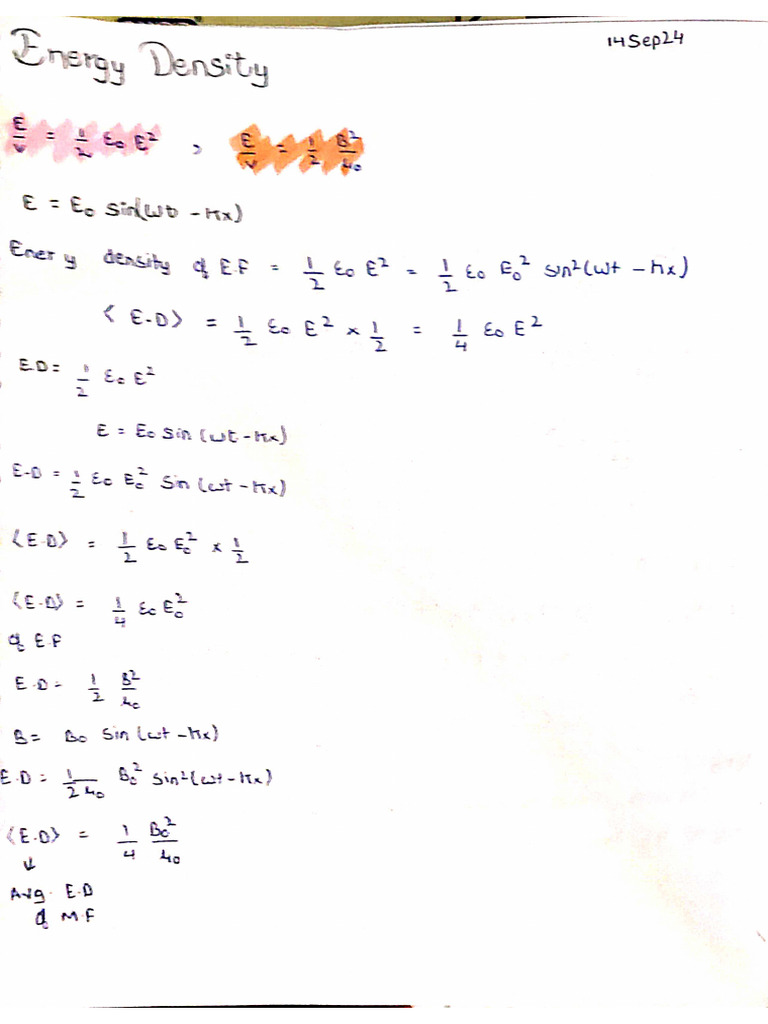 14 Sep 24
Energy Density
E/V = 1/2 ε₀ E² , E/V = 1/2 B²/μ₀
E = E₀ sin(ωt - kx)
Ener y density of E.F = 1/2 ε₀ E² = 1/2 ε₀ E₀² sin²(ωt - kx)
⟨E.D⟩ = 1/2 ε₀ E² × 1/2 = 1/4 ε₀ E²
E.D = 1/2 ε₀ E²
E = E₀ sin (ωt - kx)
E.D = 1/2 ε₀ E₀² Sin (ωt - kx)
⟨E.D⟩ = 1/2 ε₀ E₀² × 1/2
⟨E.D⟩ = 1/4 ε₀ E₀²
of E.F
E.D = 1/2 B²/μ₀
B = B₀ Sin (ωt - kx)
E.D = 1/2μ₀ B₀² sin²(ωt - kx)
⟨E.D⟩ = 1/4 B₀²/μ₀
↓
Avg. E.D
of M.F